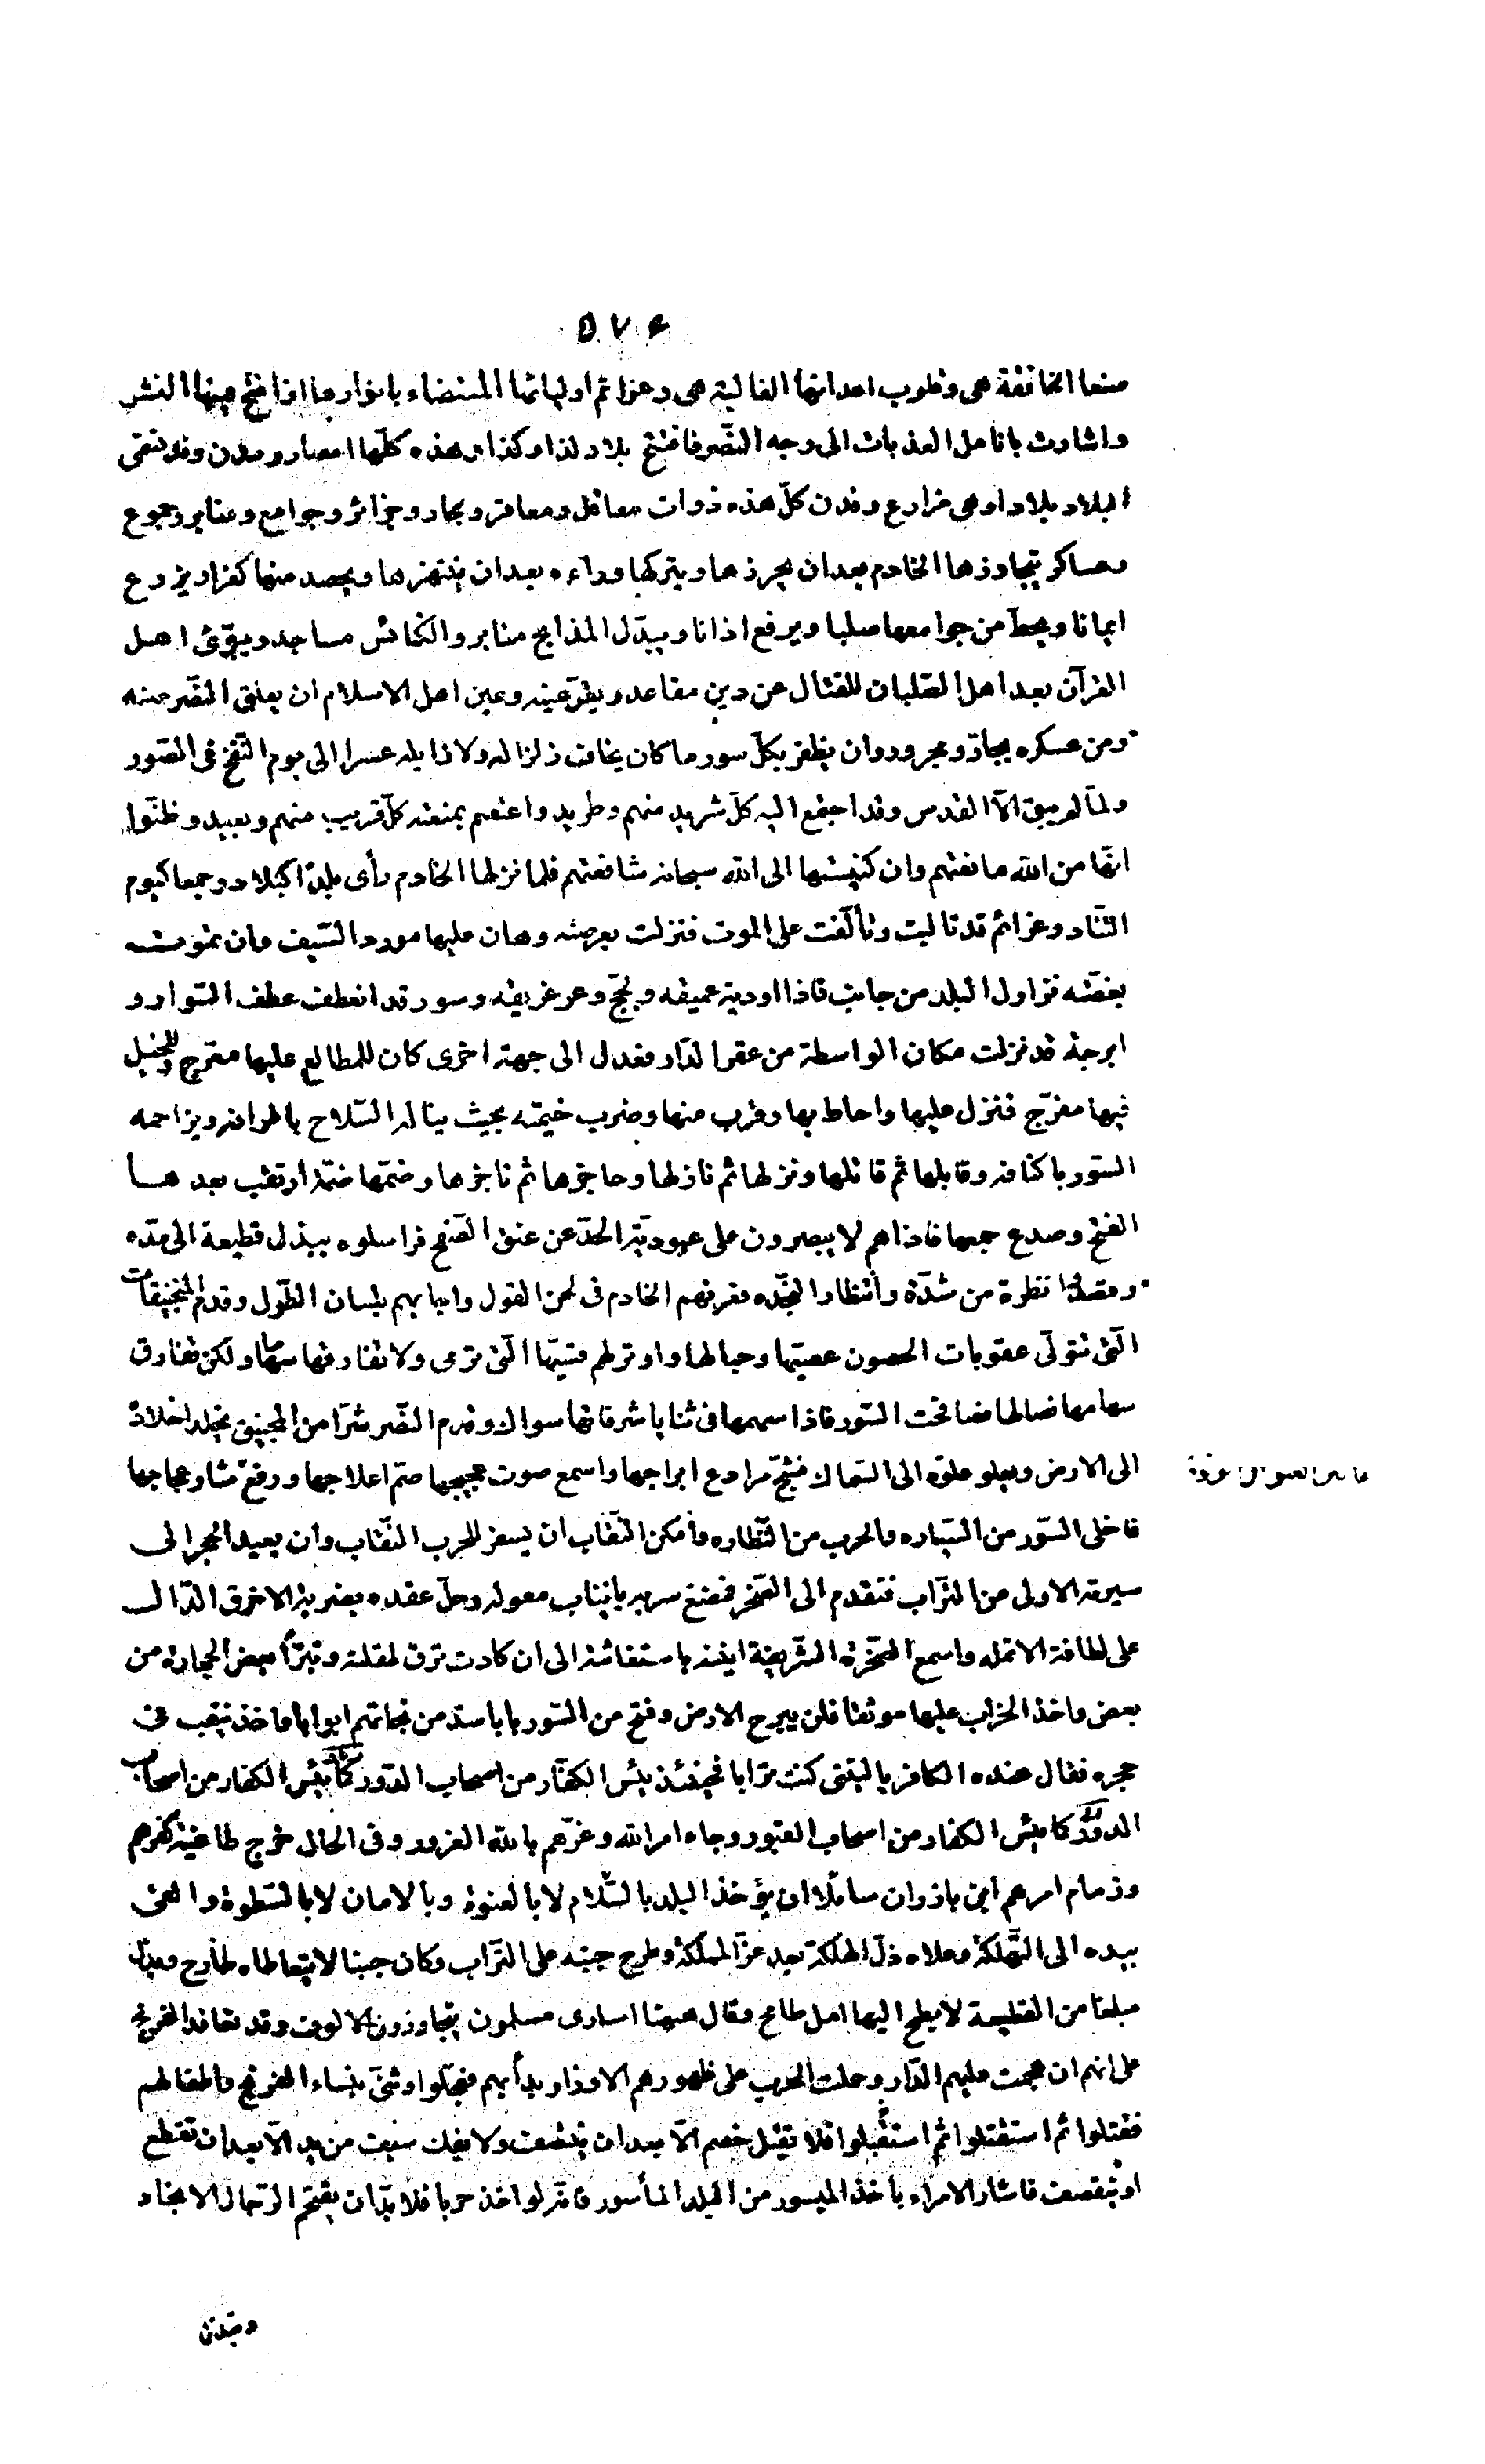 ٥٧٤
منها الخافقة هى وقلوب اعدائها الغالبة هى وعزائم اوليائها المستضاء بانوارها اذا فتح عينها النشر
واشارت بانامل العذبات الى وجه النصر فافتتح بلاد كذا وكذا وهذه كلّها امصار ومدن وقد تسمّى
البلاد بلادا وهى مزارع وفدن كلّ هذه ذوات معاقل ومعاقر وبحار وجزائر وجوامع ومنابر وجموع
وعساكر يتجاوزها الخادم بعد ان يحرزها ويتركها وراءه بعد ان ينتهزها ويحصد منها كفرا ويزرع
ايمانا ويحطّ من جوامعها صلبا ويرفع اذانا ويبدّل المذابح منابر والكنائس مساجد ويبوّئ اهل
القرآن بعد اهل الصّلبان للقتال عن دين مقاعد ويقرّ عينه وعين اهل الاسلام ان يعلق النّصر منه
ومن عسكره بجارّ ومجرور وان يظفر بكلّ سور ما كان يخاف زلزاله ولا زياله الى يوم النّفخ فى الصّور
ولمّا لم يبق الّا القدس وقد اجتمع اليه كلّ شريد منهم وطريد واعتصم بمنعته كلّ قريب منهم وبعيد وظنّوا
انّها من الله مانعتهم وان كنيستها الى الله سبحانه شافعتهم فلما نزلها الخادم رأى بلدا كبلاد وجمعا كيوم
التّناد وعزائم قد تالبت وتألّفت على الموت فنزلت بعرصته وهان عليها مورد السّيف وان تموت
بغصّته فزاول البلد من جانب فاذا اودية عميقه ولجج وعر غريقه وسور قد انعطف عطف السّوار و
ابرجة قد نزلت مكان الواسطة من عقر الدّار فعدل الى جهة اخرى كان للمطالع عليها معرّج وللخيل
فيها مفرّج فنزل عليها واحاط بها وقرب منها وضرب خيمته بحيث يناله السّلاح باطرافه ويزاحمه
السّور باكنافه وقابلها ثم قاتلها ونزلها ثم نازلها وحاجزها ثم ناجزها وضمّها ضمّة ارتقب بعدها
الفتح وصدع جمعها فاذاهم لا يبصرون على عبوديّة الحدّ عن عتق الصّفح فراسلوه ببذل قطيعة الى مدّه
وقصدوا نظرة من شدّة وانتظارا لنجده فعرفهم الخادم فى لحن القول واجابهم بلسان الطّول وقدم المنجنيقات
الّتى تتولّى عقوبات الحصون عصيّها وحبالها واوتر لهم قسيّها الّتى ترمى ولا تفارقها سهامها ولكن تفارق
سهامها نصالها فصافحت السّور فاذا سهمها فى ثنايا شرفاتها سواك وقدم النّصر نسرا من المنجنيق يخلد اخلاده
الى الارض ويعلو علوّه الى السّماك فشجّ مرادع ابراجها واسمع صوت عجيجها صمّ اعلاجها ورفع مثار عجاجها
فاخلى السّور من السّيّاره والحرب من النّظّاره وامكن النّقّاب ان يسفر للحرب النّقاب وان يعيد الحجر الى
سيرته الاولى من التّراب فتقدم الى الصّخر فمضغ سرده بانياب معوله وحلّ عقده بضربة الاخرق الدّال
على لطافة الانمله واسمع الصّخرة الشّريفة انينه باستغاثته الى ان كادت ترق لمقتله وتبرّأ بعض الحجارة من
بعض واخذ الخراب عليها موثقا فلن يبرح الارض وفتح من السّور بابا سدّ من نجاتهم ابوابا واخذ ينقب فى
حجره فقال عنده الكافر يا ليتنى كنت ترابا فحينئذ يئس الكفّار من اصحاب الدّور كما يئس الكفار من اصحاب
الدّور كما يئس الكفار من اصحاب القبور وجاء امر الله وغرّهم بالله الغرور وفى الحال خرج طاغية كفرهم
وزمام امرهم ابن بارزان سائلا ان يؤخذ البلد بالسّلام لا بالعنوة وبالامان لا بالسّطوة والقى
بيده الى التّهلكة وعلاه ذلّ الهلكة بعد عزّ المملكة وطرح جنبه على التّراب وكان جنبا لا يتعاطاه طارح وبذل
مبلغا من القطيعة لا يطمح اليها امل طامح وقال ههنا اسارى مسلمون يتجاوزون الالوف وقد تعاقد الفرنج
على انهم ان هجمت عليهم الدّار وحملت الحرب على ظهورهم الاوزار بدأ بهم فعجّلوا وثنّى بنساء الفرنج واطفالهم
فقتلوا ثم استقتلوا ثم استقبلوا فلا يقتل خصم الّا بعد ان ينتصف ولا يفك سيف من يد الّا بعد ان تقطع
او ينقصف فاشار الامراء باخذ الميسور من البلد المأسور فانّه لو اخذ حربا فلا بدّ ان يقتحم الرّجال الانجاد